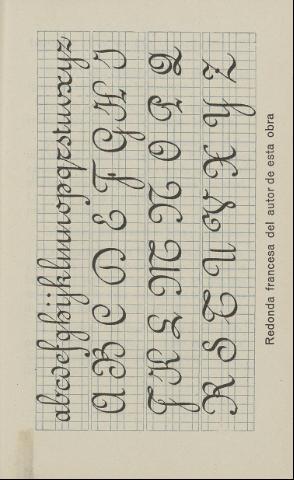 abcdefghijklmnopqrstuvxyz
A B C D E F G H I
J K L M N O P Q
R S T U V X Y Z
Redonda francesa del autor de esta obra